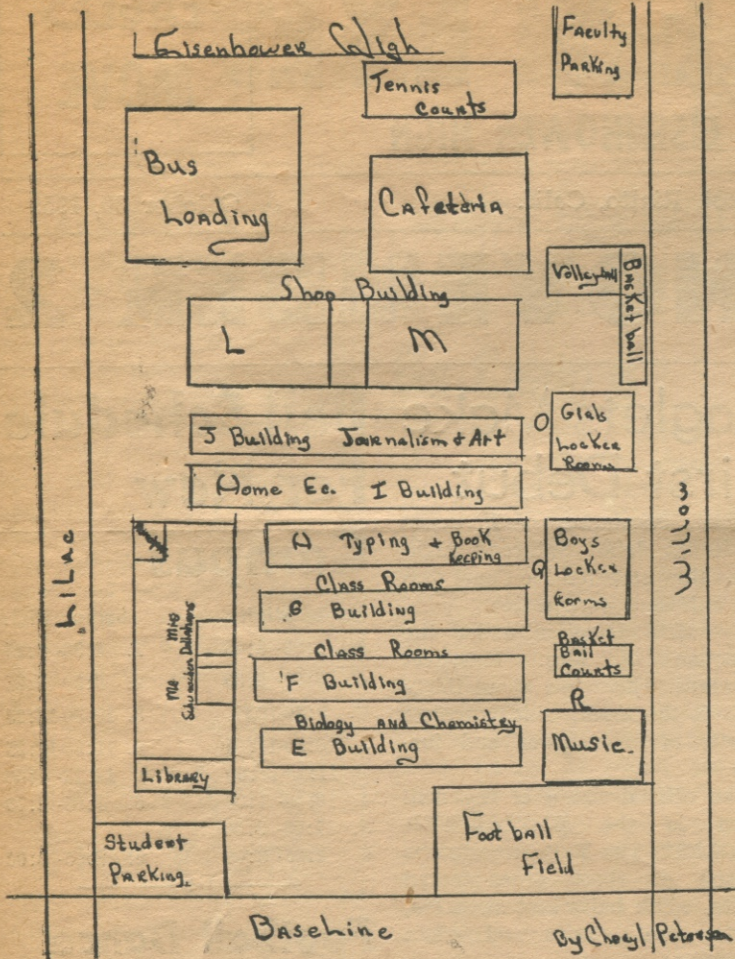 Eisenhower High
Faculty
Parking
Tennis
Courts
Bus
Loading
Cafeteria
Volleyball
Basketball
Shop Building
L
M
J Building Journalism & Art
O
Girls
Locker
Rooms
Home Ec. I Building
H Typing & Book
Keeping
Q
Boys
Locker
Rooms
Class Rooms
G Building
Class Rooms
F Building
Basket
Ball
Courts
R
Music
Biology and Chemistry
E Building
Miss
Dallahans
Mr
Library
Student
Parking
Foot ball
Field
Lilac
Willow
Baseline
By Cheryl Peterson